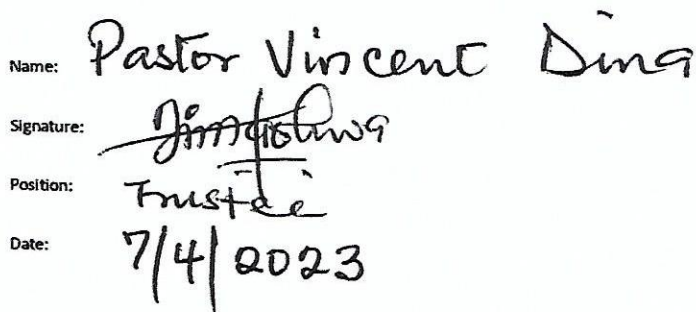 Name: Pastor Vincent Dina
Signature:
Position: Trustee
Date: 7/4/2023